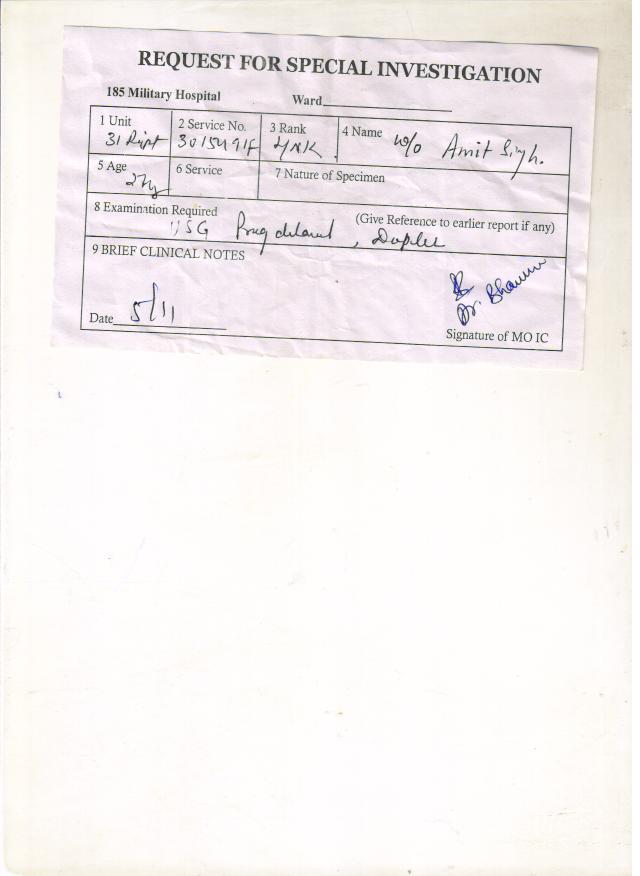 REQUEST FOR SPECIAL INVESTIGATION
185 Military Hospital Ward
1 Unit 2 Service No. 3 Rank 4 Name W/o Amit Singh.
31
5 Age 6 Service 7 Nature of Specimen
27y
8 Examination Required (Give Reference to earlier report if any)
USG
9 BRIEF CLINICAL NOTES
Dr.
Date 5/11
Signature of MO IC